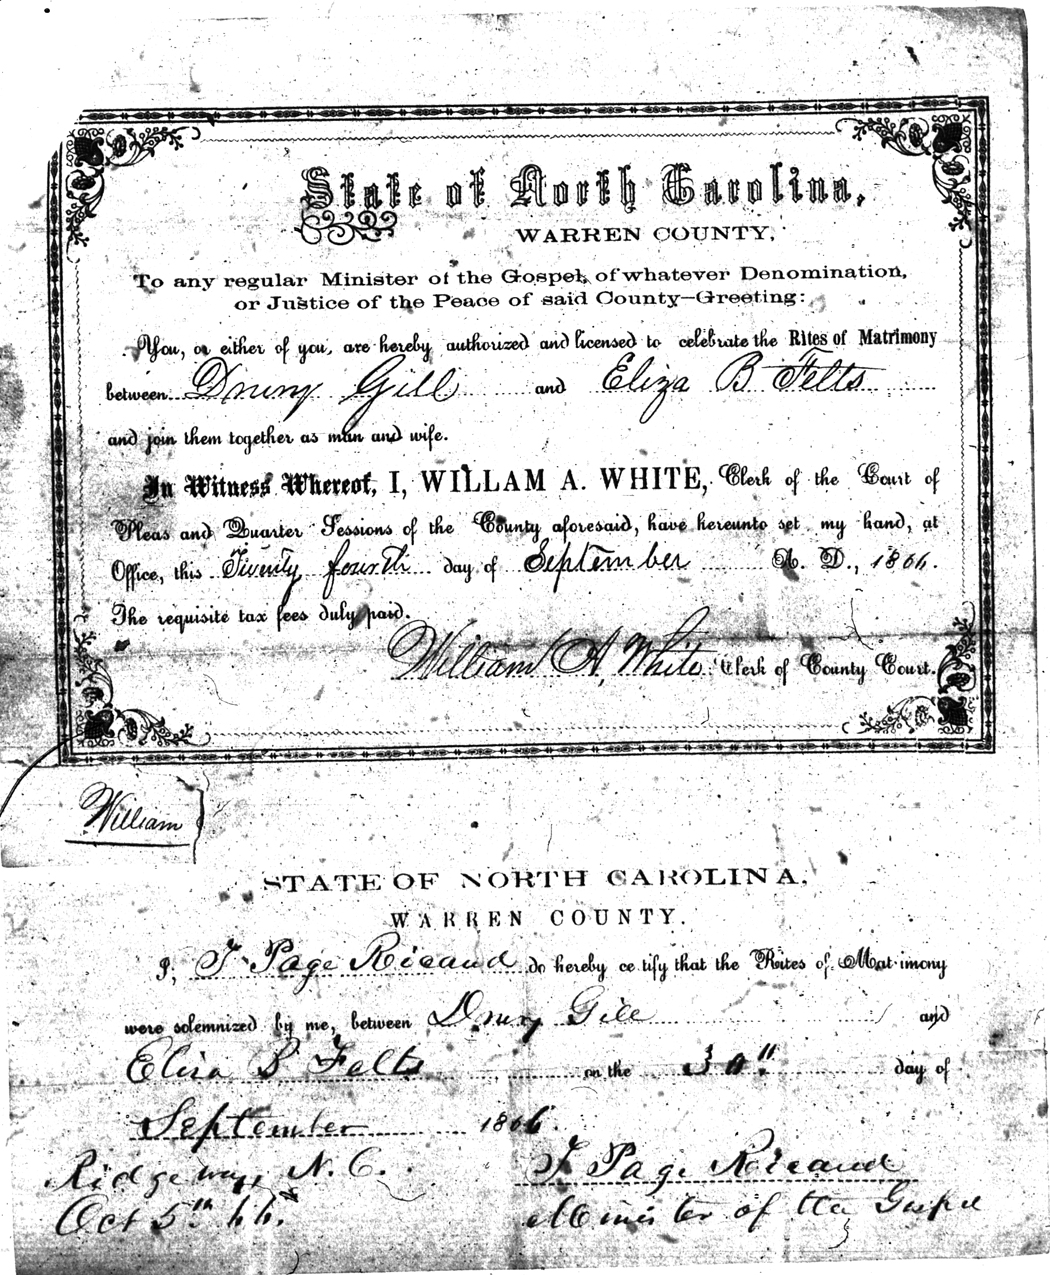 State of North Carolina,
WARREN COUNTY,
To any regular Minister of the Gospel, of whatever Denomination,
or Justice of the Peace of said County—Greeting:
You, or either of you, are hereby authorized and licensed to celebrate the Rites of Matrimony
between Drury Gill and Eliza B Felts
and join them together as man and wife.
In Witness Whereof, I, WILLAM A. WHITE, Clerk of the Court of
Pleas and Quarter Sessions of the County aforesaid, have hereunto set my hand, at
Office, this Twenty fourth day of September A. D., 1866.
The requisite tax fees duly paid.
William A, White Clerk of County Court.
William
STATE OF NORTH CAROLINA,
WARREN COUNTY.
I, T Page Ricaud do hereby ce tify that the Rites of Mat imony
were solemnized by me, between Drury Gill and
Eliza B Felts on the 30" day of
September 1866.
Ridgeway N. C.
T Page Ricaud
Oct 5th 66.
Minister of the Gospel